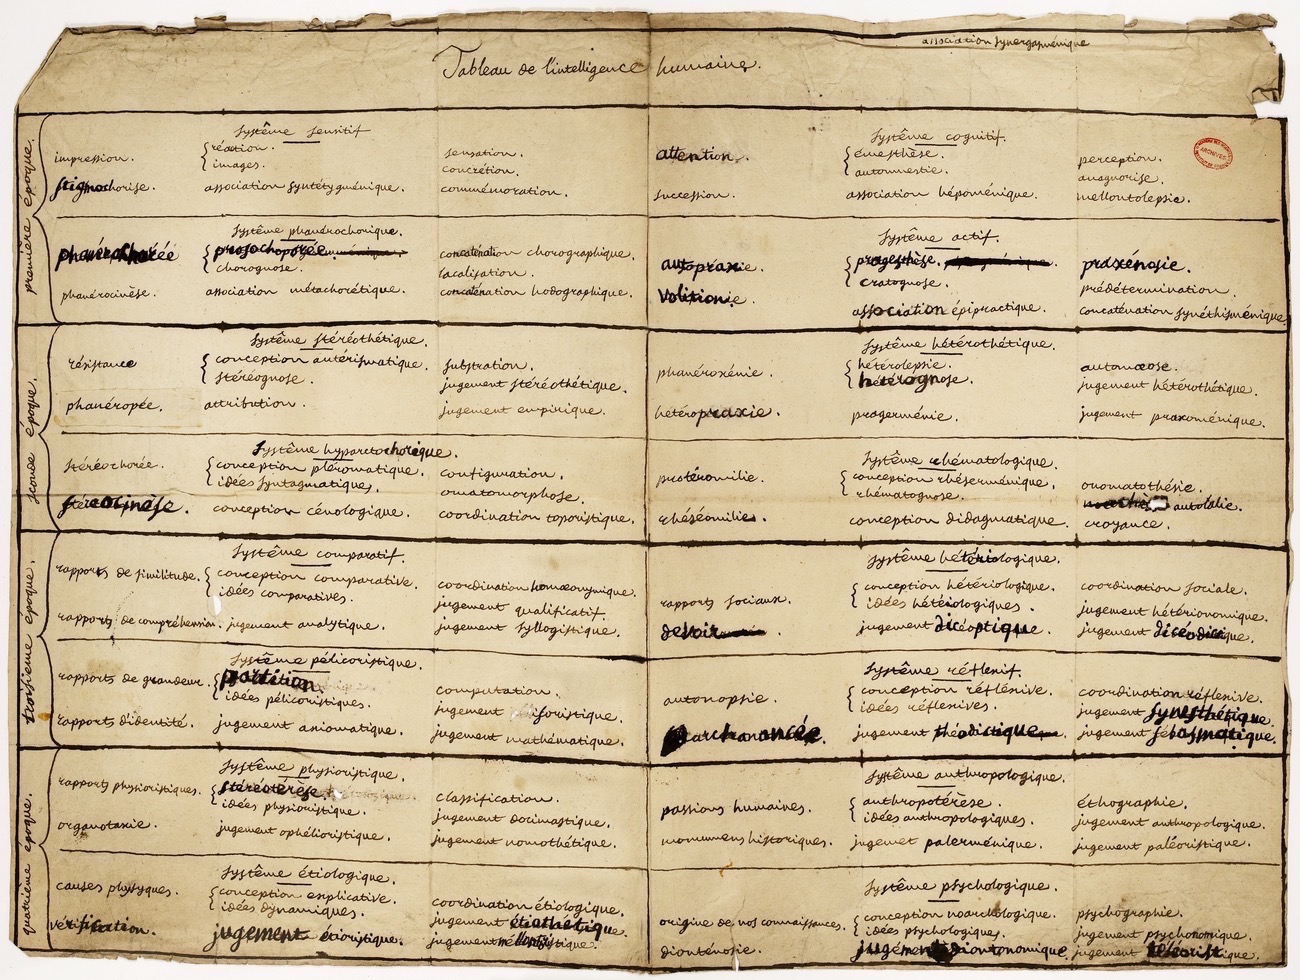 association synergaménique
Tableau de l'intelligence humaine.
première époque.
Système sensitif
impression.
réaction.
images.
sensation.
concrétion.
stigmochorise.
association syntétygménique.
commémoration.
Système cognitif.
attention.
émesthèse.
automnestie.
perception.
anagnorise.
succession.
association hépoménique.
mellontolepsie.
ARCHIVES
Système phanérochorique.
phanérochorée
prosochoporée
chorognose.
concaténation chorographique.
localisation.
phanérocinèse.
association métachorétique.
concaténation hodographique.
Système actif.
autopraxie.
progesthèse.
cratognose.
praxénosie.
prédétermination.
volition
association épipractique.
concaténation synéthisménique.
seconde époque.
Système stéréothétique.
résistance
conception antérismatique.
stéréognose.
substration.
jugement stéréothétique.
phanéropée.
attribution.
jugement empirique.
Système hétérothétique.
phanéroxénie.
hétérolepsie.
hétérognose.
automoeose.
jugement hétérothétique.
hétéropraxie.
progerménie.
jugement praxoménique.
Système hyparctochorique.
stéréochorée.
conception pléromatique.
idées syntagmatiques.
configuration.
onatomorphose.
stéréocinèse.
conception cénologique.
coordination toporistique.
Système rhématologique.
protéomilie.
conception rhéserménique.
rhématognose.
onomatothésie.
autolalie.
rhéséomilie.
conception didagmatique.
croyance.
troisième époque.
Système comparatif.
rapports de similitude.
conception comparative.
idées comparatives.
coordination homœonymique.
jugement qualificatif.
rapports de compréhension.
jugement analytique.
jugement syllogistique.
Système hétériologique.
rapports sociaux.
conception hétériologique.
idées hétériologiques.
coordination sociale.
jugement hétérionomique.
devoir
jugement dicéoptique.
jugement
Système pélicoristique.
rapports de grandeur.
partition
idées pélicoristiques.
computation.
jugement
rapports d'identité.
jugement axiomatique.
jugement mathématique.
Système réflexif.
autonopsie.
conception réflexive.
idées réflexives.
coordination réflexive.
jugement synesthétique
jugement sébasmatique.
quatrième époque.
Système physioristique.
rapports physioristiques.
stéréotérèse.
idées physioristique.
classification.
jugement docimastique.
organotaxie.
jugement ophélioristique.
jugement nomothétique.
Système anthropologique.
passions humaines.
anthropotérèse.
idées anthropologiques.
éthographie.
jugement anthropologique.
monumens historiques.
jugemet palerménique.
jugement paléoristique.
Système étiologique.
causes physiques.
conception explicative.
idées dynamiques.
coordination étiologique.
jugement étiothétique.
vérification.
jugement étioristique.
jugement
Système psychologique.
origine de nos connaissances.
conception noarchologique.
idées psychologiques.
psychographie.
jugement psychonomique.
dionténosie.
jugement diontonomique.
jugement téléoristique.